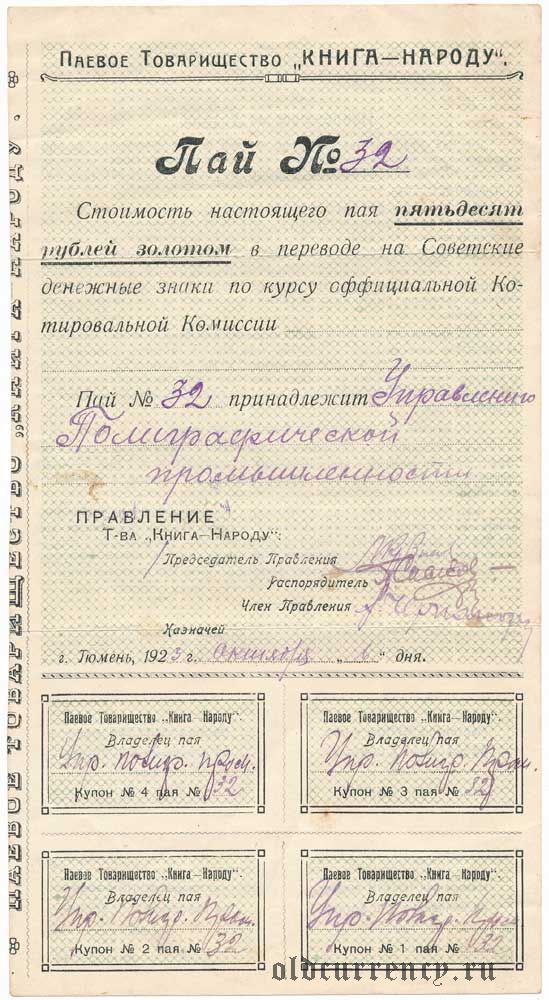 Паевое Товарищество „КНИГА—НАРОДУ“.
Пай № 32
Стоимость настоящего пая пятьдесят
рублей золотом в переводе на Советские
денежные знаки по курсу оффициальной Ко-
тировальной Комиссии
Пай № 32 принадлежит Управлению
Полиграфической
промышленности
ПРАВЛЕНИЕ
Т-ва „Книга—Народу“:
Председатель Правления
Распорядитель
Член Правления
Казначей
г. Тюмень, 1923 г. октября „6“ дня.
Паевое Товарищество „Книга—Народу“.
Владелец пая
Упр. полигр. пром.
Купон № 4 пая № 32
Паевое Товарищество „Книга—Народу“.
Владелец пая
Упр. Полигр. Пром.
Купон № 3 пая № 32
Паевое Товарищество „Книга—Народу“.
Владелец пая
Упр. Полигр. Пром.
Купон № 2 пая № 32
Паевое Товарищество „Книга—Народу“.
Владелец пая
Упр. Полигр. Пром.
Купон № 1 пая № 32
ПАЕВОЕ ТОВАРИЩЕСТВО „КНИГА—НАРОДУ“.
oldcurrency.ru